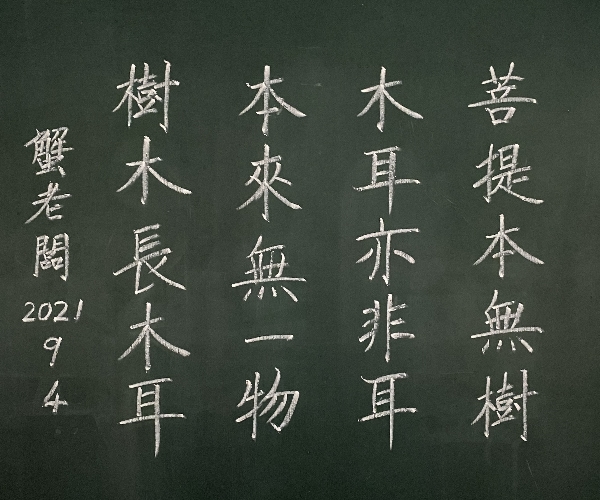 菩提本無樹
木耳亦非耳
本來無一物
樹木長木耳
蟹老闆 2021 9 4